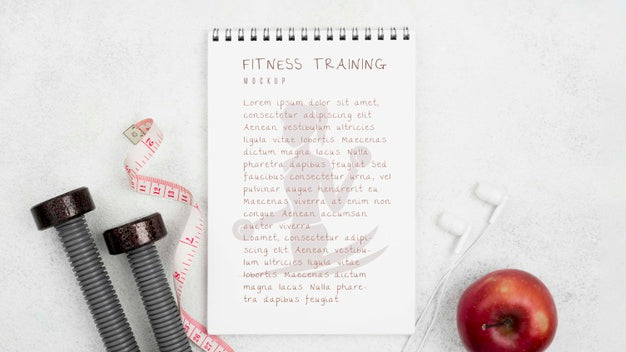 FITNESS TRAINING
MOCKUP
Lorem ipsum dolor sit amet,
consectetur adipiscing elit
Aenean vestibulum ultricies
ligula lobortis. Maecenas
dictum magna lacus. Nulla
pharetra dapibus feugiat. Sed
faucibus consectetur urna, vel
pulvinar augue hendrerit eu.
Maecenas viverra at enim non
congue. Aenean accumsan
auctor viverra.
Loamet, consectetur adipi-
scing elit. Aenean vestibu-
lum ultricies ligula vitae
lobortis. Maecenas dictum
magna lacus. Nulla phare-
tra dapibus feugiat